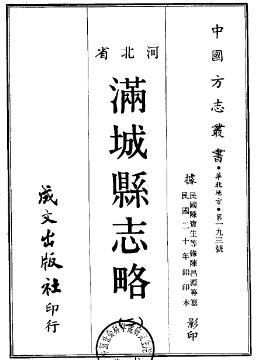 中國方志叢書・華北地方・第一九三號
據民國陳寶生等修陳昌源等纂
民國二十年鉛印本
影印
河北省
滿城縣志略
(一)
成文出版社印行